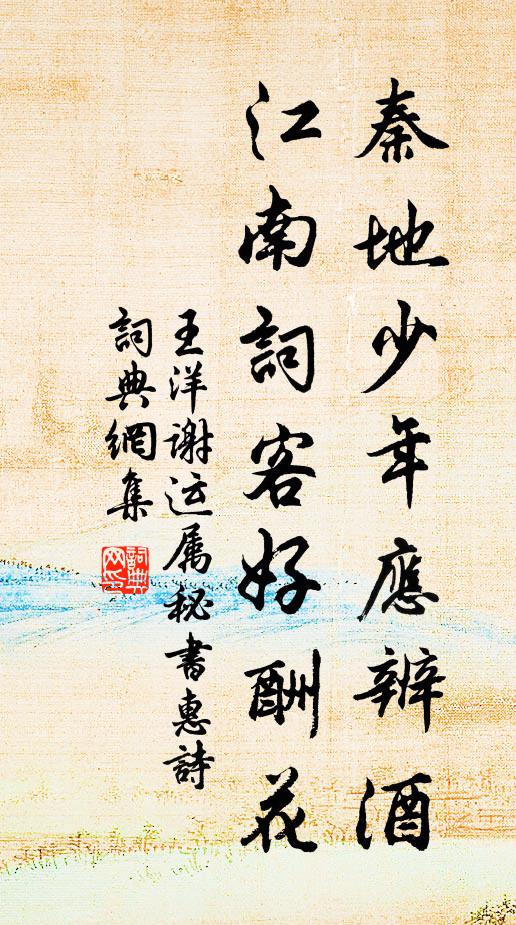 秦地少年應辨酒
江南詞客好酬花
王洋谢运属秘書惠詩
詞典網集